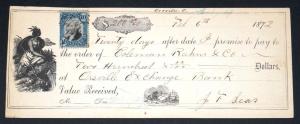 Feb 6th 1872
Twenty days after date I promise to pay to
the order of Coleman Rahm & Co
Two Hundred & Dollars,
at Orville Exchange Bank
Value Received,
No. Due J. F. Seas